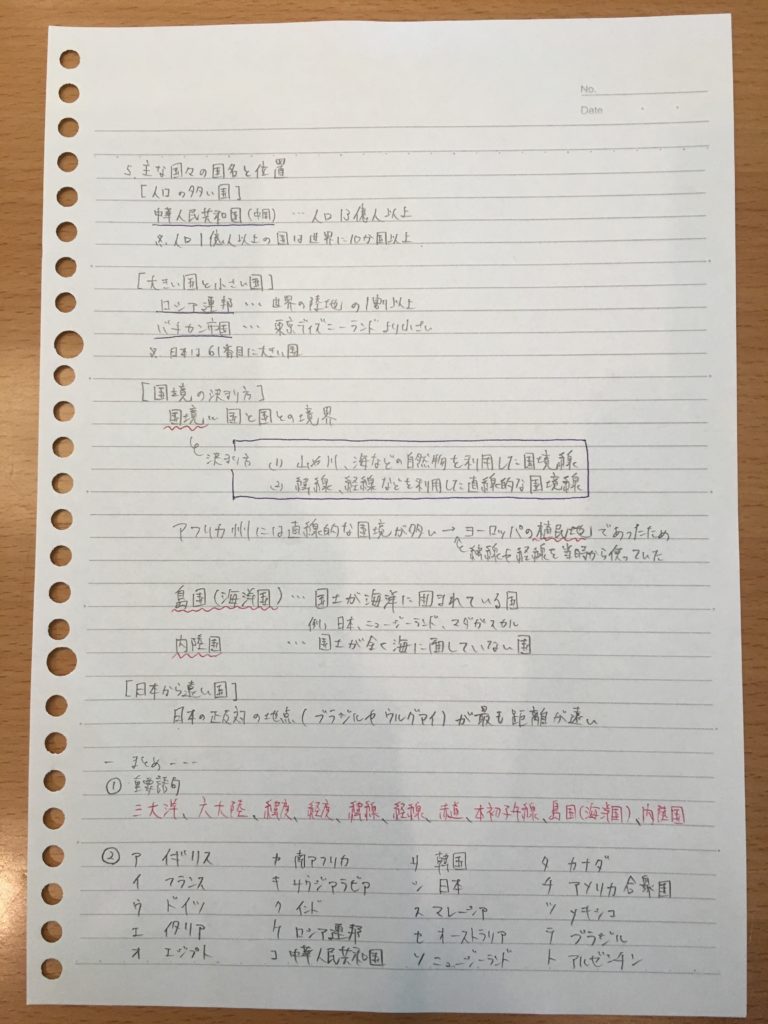 No.
Date
5 主な国々の国名と位置
[人口の多い国]
中華人民共和国(中国) … 人口13億人以上
※ 人口1億人以上の国は世界に10か国以上
[大きい国と小さい国]
ロシア連邦 … 世界の陸地の1割以上
バチカン市国 … 東京ディズニーランドより小さい
※ 日本は61番目に大きい国
[国境の決まり方]
国境 … 国と国との境界
決まり方 (1) 山や川、海などの自然物を利用した国境線
(2) 緯線、経線などを利用した直線的な国境線
アフリカ州には直線的な国境が多い → ヨーロッパの植民地であったため
緯線や経線を当時から使っていた
島国(海洋国) … 国土が海洋に囲まれている国
例, 日本、ニュージーランド、マダガスカル
内陸国 … 国土が全く海に面していない国
[日本から遠い国]
日本の正反対の地点(ブラジルやウルグアイ)が最も距離が遠い
ー まとめ ---
① 重要語句
三大洋、六大陸、緯度、経度、緯線、経線、赤道、本初子午線、島国(海洋国)、内陸国
② ア イギリス カ 南アフリカ サ 韓国 タ カナダ
イ フランス キ サウジアラビア シ 日本 チ アメリカ合衆国
ウ ドイツ ク インド ス マレーシア ツ メキシコ
エ イタリア ケ ロシア連邦 セ オーストラリア テ ブラジル
オ エジプト コ 中華人民共和国 ソ ニュージーランド ト アルゼンチン